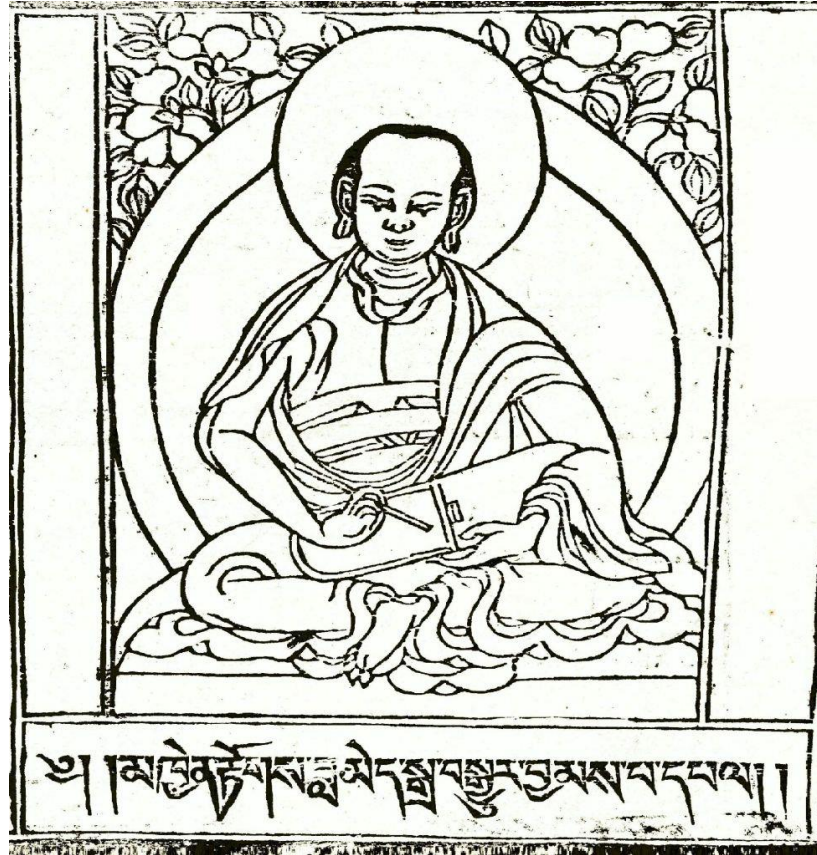 ༄། །མཁྱེན་རྟོགས་བླ་མེད་སྒྲ་བསྒྱུར་བྱམས་པ་དཔལ། །